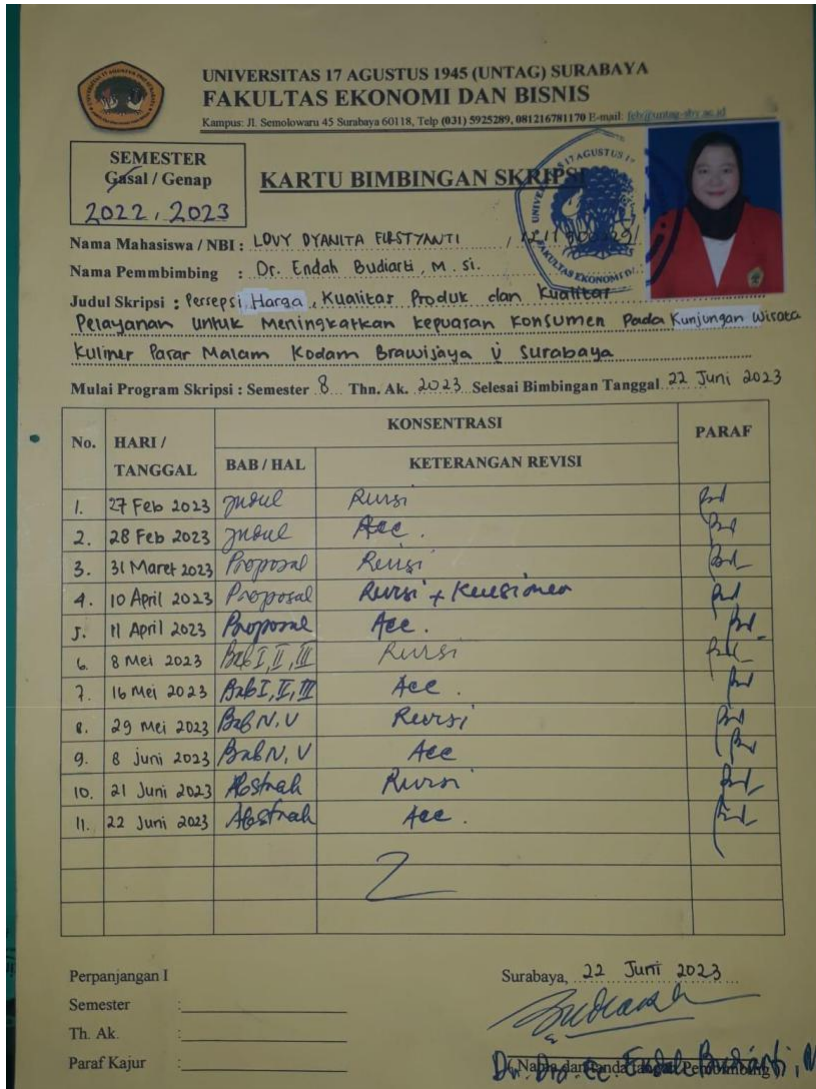 UNIVERSITAS 17 AGUSTUS 1945 (UNTAG) SURABAYA
FAKULTAS EKONOMI DAN BISNIS
Kampus: Jl. Semolowaru 45 Surabaya 60118, Telp (031) 5925289, 081216781170 E-mail: feb@untag-sby.ac.id
SEMESTER
Gasal / Genap
2022, 2023
KARTU BIMBINGAN SKRIPSI
Nama Mahasiswa / NBI : LOVY DYANITA FIRSTYANTI /
Nama Pemmbimbing : Dr. Endah Budiarti, M. Si.
Judul Skripsi : Persepsi Harga, Kualitas Produk dan Kualitas
Pelayanan untuk Meningkatkan kepuasan Konsumen Pada Kunjungan Wisata
Kuliner Pasar Malam Kodam Brawijaya V Surabaya
Mulai Program Skripsi : Semester 8 Thn. Ak. 2023 Selesai Bimbingan Tanggal 22 Juni 2023
No. HARI / TANGGAL KONSENTRASI PARAF
BAB / HAL KETERANGAN REVISI
1. 27 Feb 2023 Judul Revisi
2. 28 Feb 2023 Judul Acc.
3. 31 Maret 2023 Proposal Revisi
4. 10 April 2023 Proposal Revisi + Kuesioner
5. 11 April 2023 Proposal Acc.
6. 8 Mei 2023 Bab I, II, III Revisi
7. 16 Mei 2023 Bab I, II, III Acc.
8. 29 Mei 2023 Bab IV, V Revisi
9. 8 Juni 2023 Bab IV, V Acc
10. 21 Juni 2023 Abstrak Revisi
11. 22 Juni 2023 Abstrak Acc.
Perpanjangan I
Surabaya, 22 Juni 2023
Semester :
Th. Ak. :
Paraf Kajur :
(Nama dan tanda tangan Pembimbing)
Dr. Dra. Ec. Endah Budiarti, M